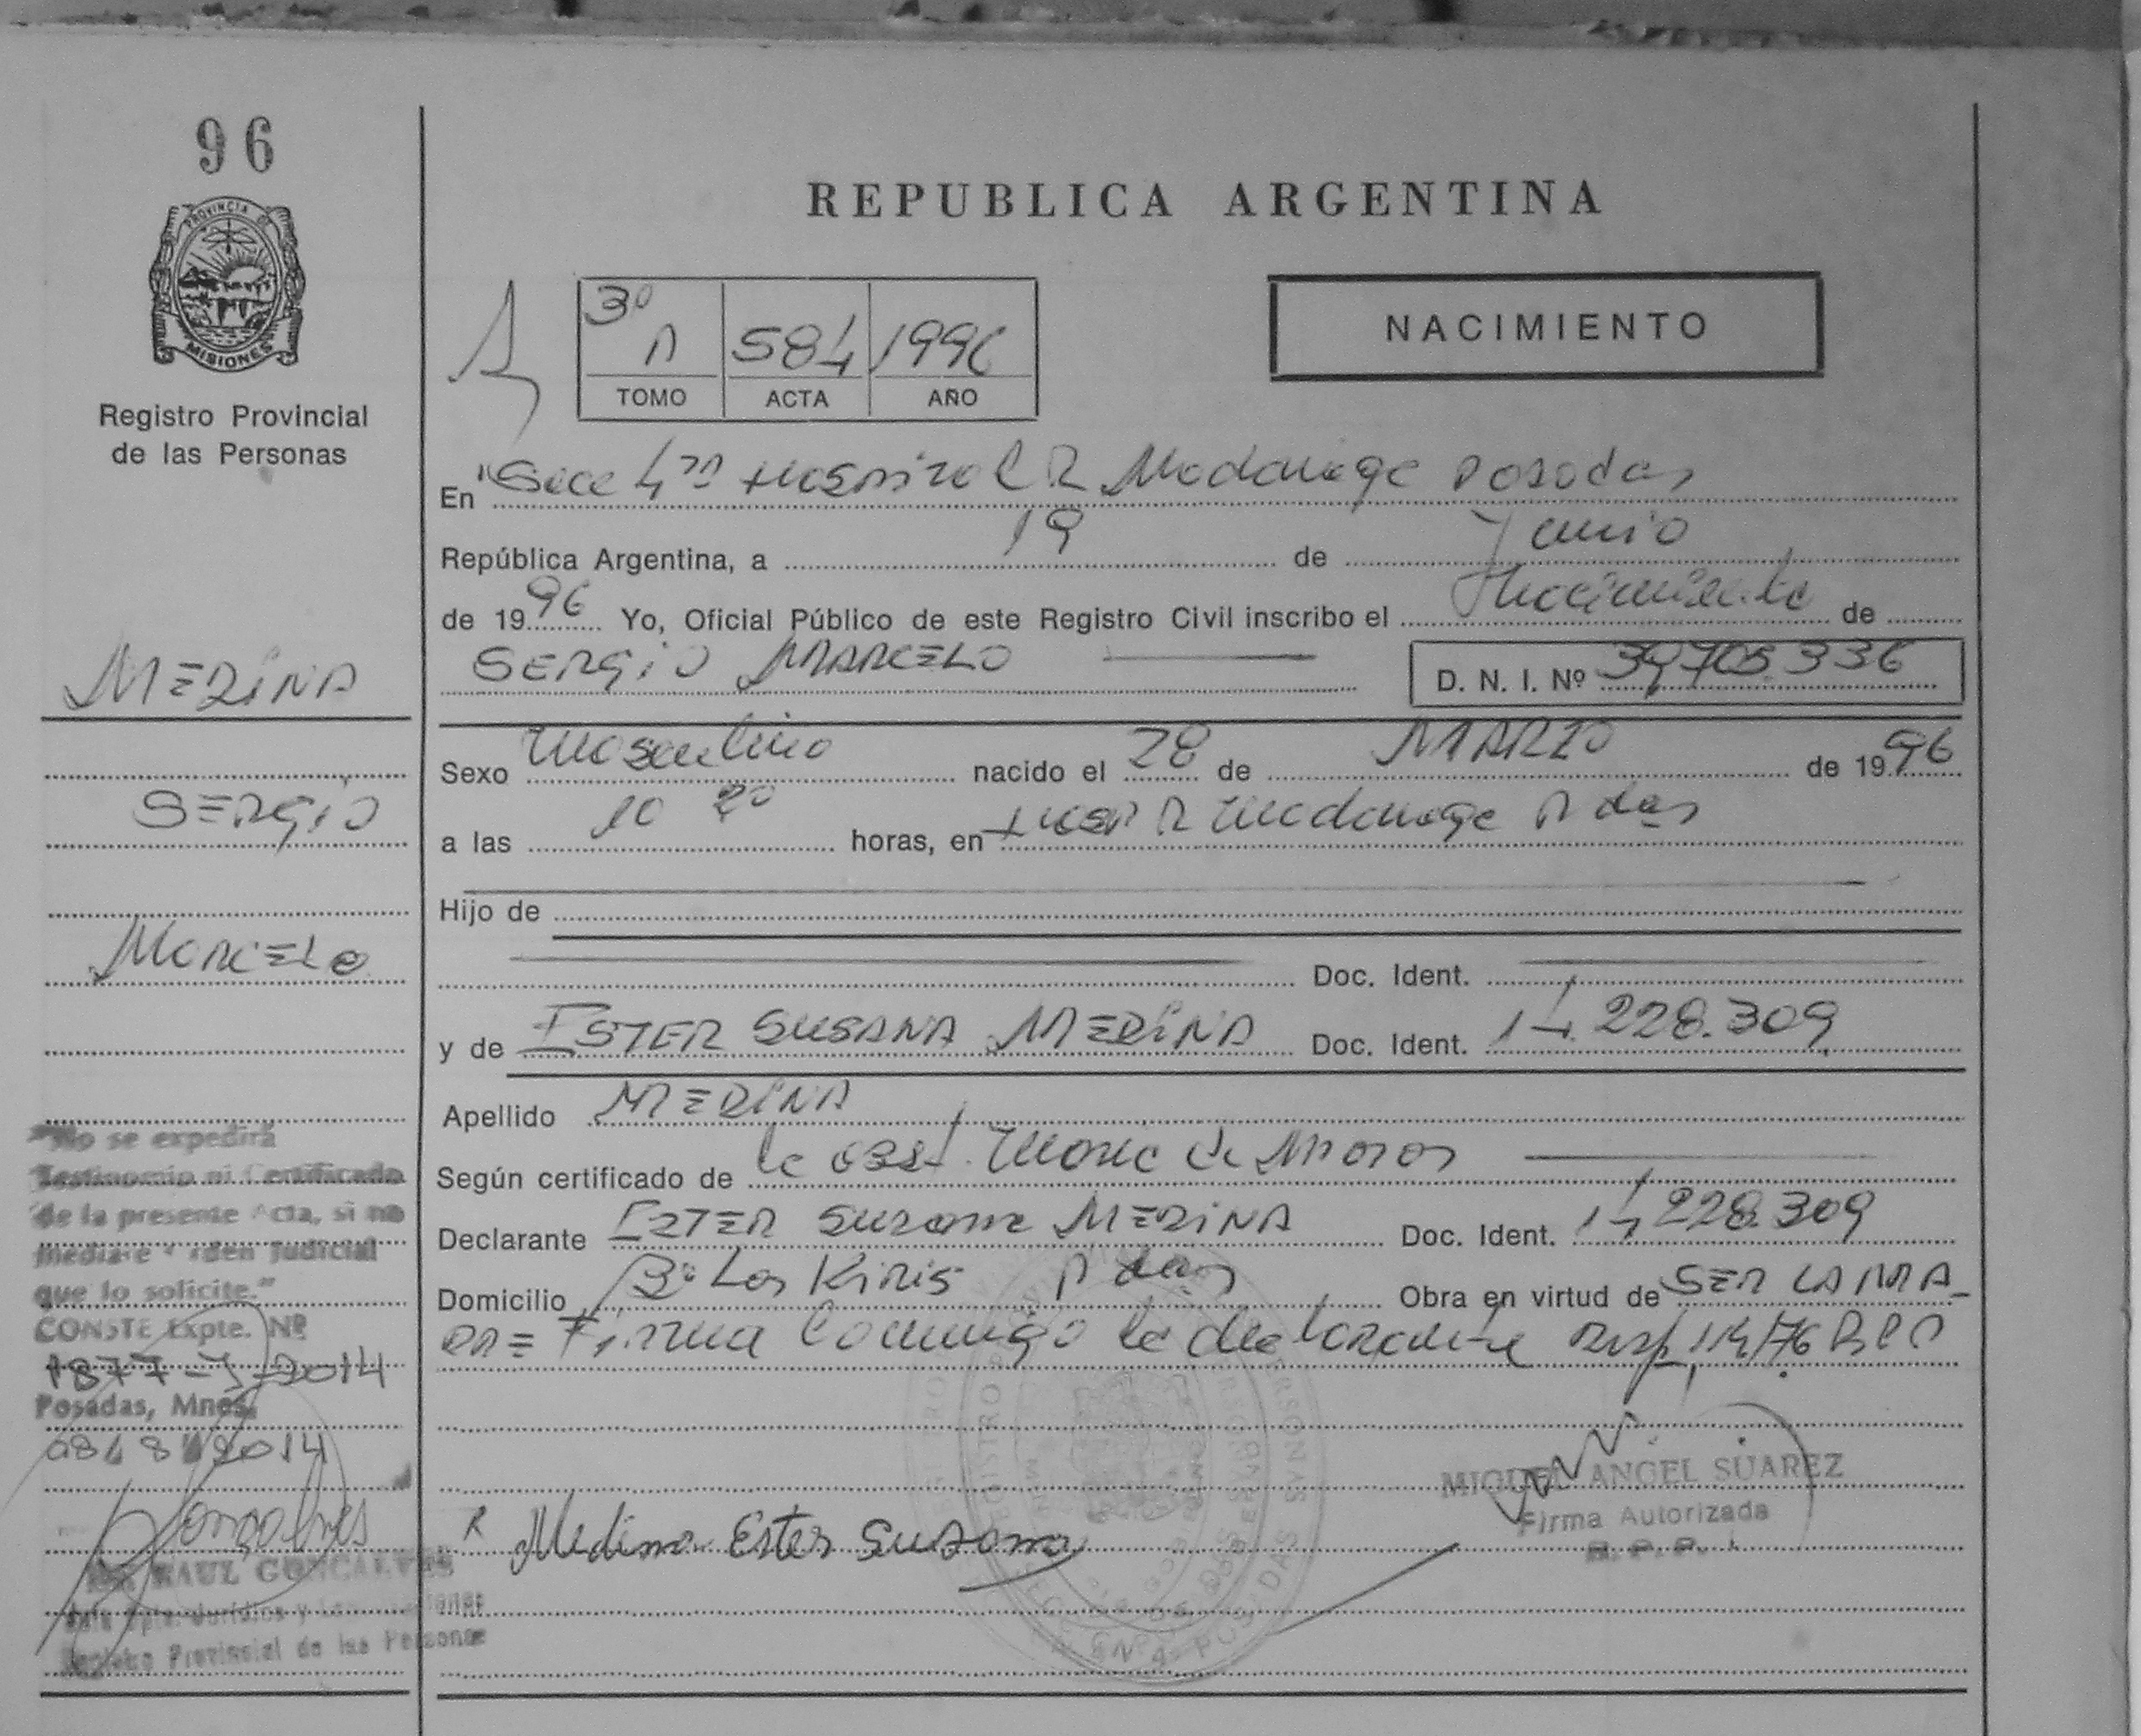 96
PROVINCIA DE
MISIONES
Registro Provincial
de las Personas
REPUBLICA ARGENTINA
3º
A 584 1996
TOMO ACTA AÑO
NACIMIENTO
En "Secc 4ta Hospital R Madariaga Posadas
República Argentina, a 19 de Junio
de 1996 Yo, Oficial Público de este Registro Civil inscribo el Nacimiento de
SERGIO MARCELO D. N. I. Nº 39.705.336
MEDINA
SERGIO
MARCELO
Sexo Masculino nacido el 28 de MARZO de 1996
a las 10 20 horas, en Hosp R Madariaga Pdas
Hijo de
Doc. Ident.
y de ESTER SUSANA MEDINA Doc. Ident. 14.228.309
Apellido MEDINA
Según certificado de la obst. Maria de Moros
Declarante ESTER Susana MEDINA Doc. Ident. 14.228.309
Domicilio Bº Los Kiris Pdas Obra en virtud de SER LA MA
DRE= Firma conmigo la declarante Disp. 114/76
"No se expedirá
Testimonio ni Certificado
de la presente Acta, si no
mediare Orden Judicial
que lo solicite."
CONSTE Expte. Nº
1877-J-2014
Posadas, Mnes.
2014
Goncalves
RAUL GONCALVES
Registro Provincial de las Personas
Medina Ester Susana
MIGUEL ANGEL SUAREZ
Firma Autorizada
R. P. P.